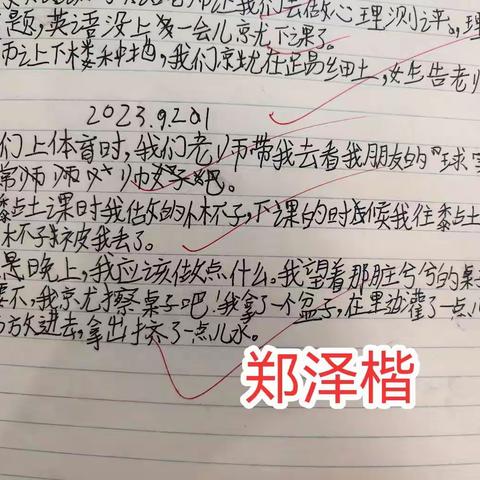 我们去做心理测评。理
题,英语没上多一会儿就下课了。
师让下楼种地,我们就在踩细土,女生告老师
2023.9.201
们上体育时,我们老师带我去看我朋友的"球
黏土课时我做的小杯子,下课的时候我往黏土
杯子
是晚上,我应该做点什么。我望着那脏兮兮的桌子
要不,我就擦桌子吧!我拿了一个盆子,在里边灌了一点儿
方放进去,拿出挤了一点儿水。
郑泽楷